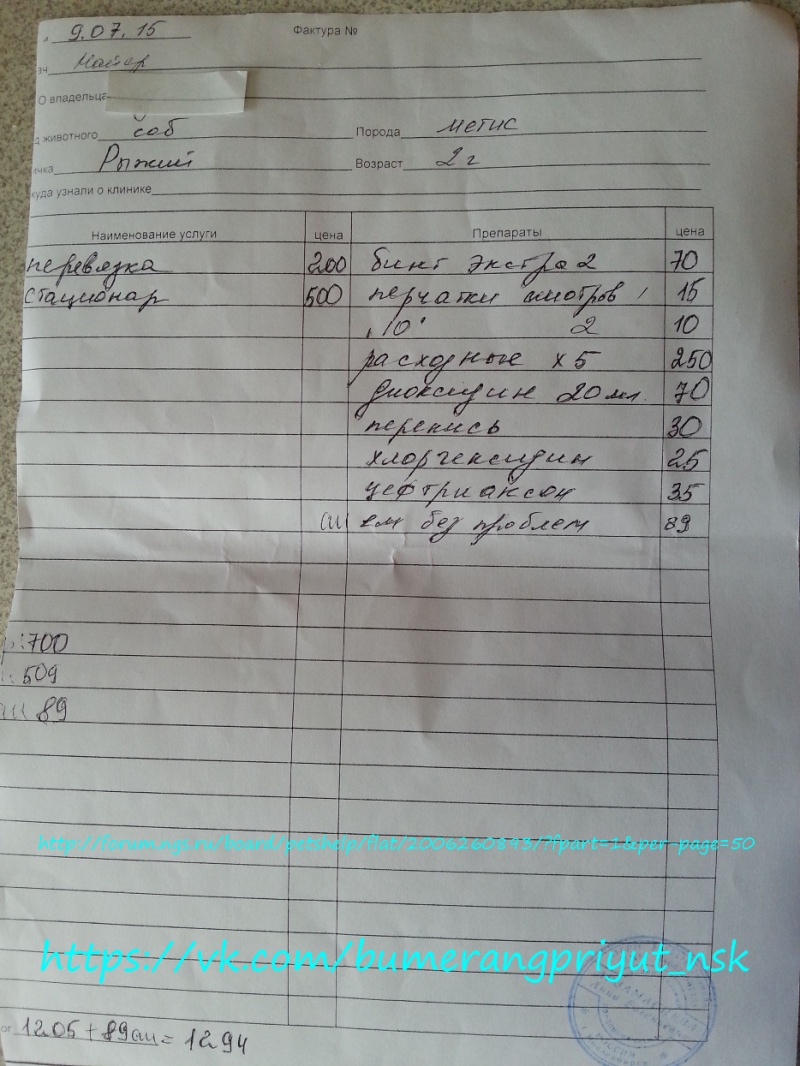 9.07.15 Фактура №
О владельца
животного соб Порода метис
ичка Рыжий Возраст 2 г
куда узнали о клинике
Наименование услуги цена Препараты цена
перевязка 200 бинт экстра 2 70
стационар 500 перчатки смотров 1 15
"10" 2 10
расходные х 5 250
диоксидин 20 мл. 70
перекись 30
хлоргексидин 25
цефтриаксон 35
ем без проблем 89
:700
: 509
89
http://forum.ngs.ru/board/petshelp/flat/2006260893/?fpart=1&per-page=50
https://vk.com/bumerangpriyut_nsk
ог 1205 + 89 = 1294